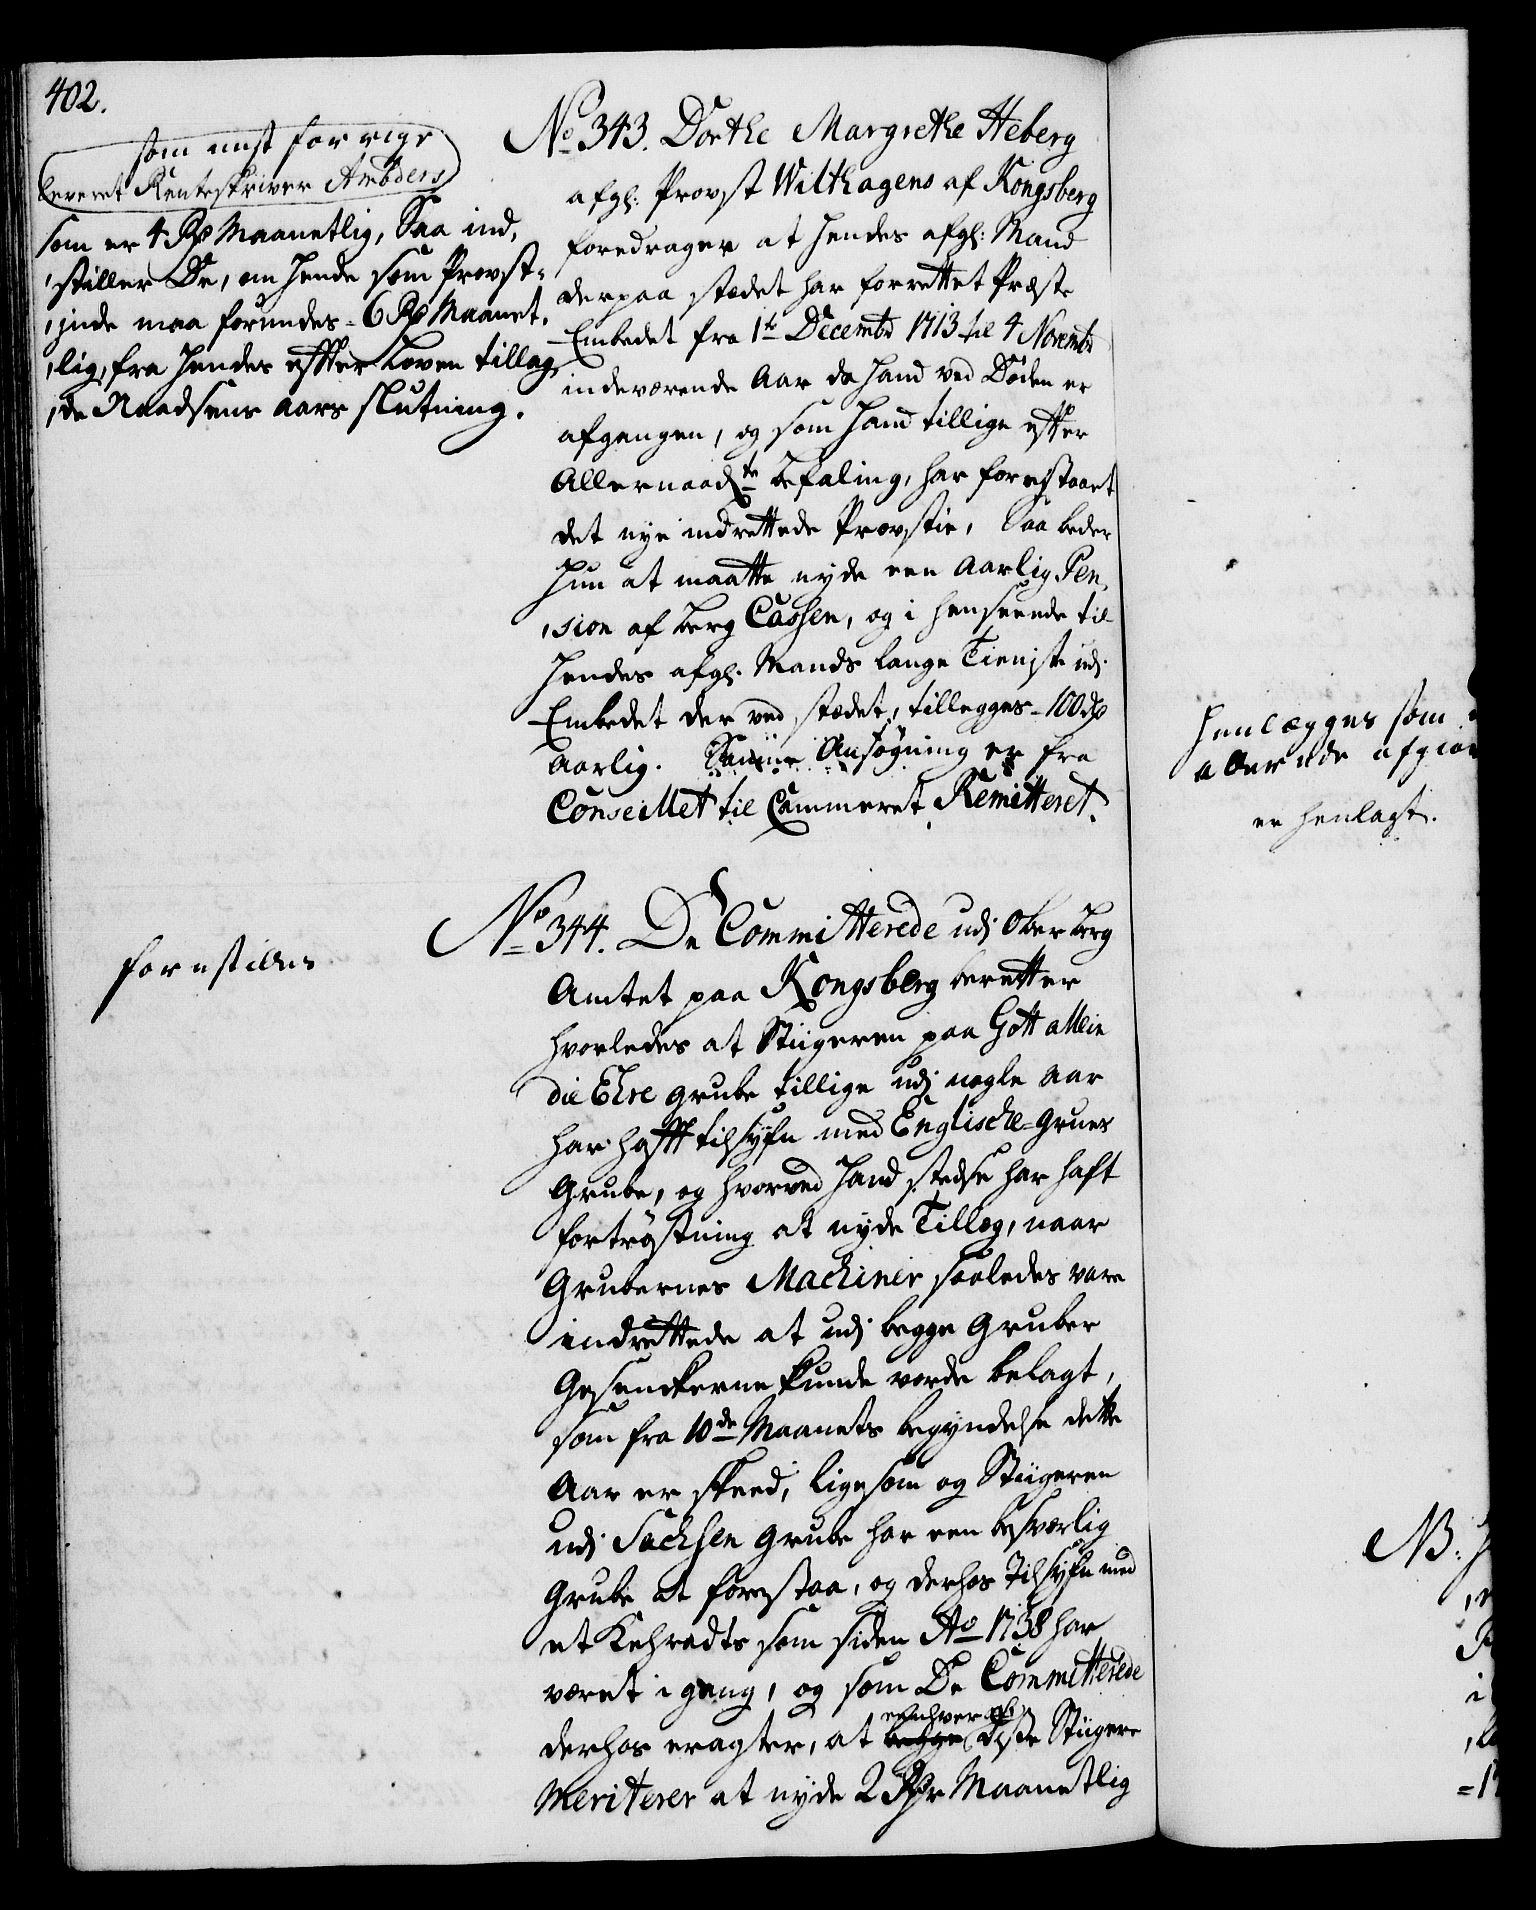 402.
som nest forrige
leveret Renteskriver Ambders
som er 4 Rd Maanetlig, Saa ind,
,stiller De, om hende som Provst-
,inde maa forundes - 6 Rd Maanet,
,lig, fra hendes effter Loven tillag,
,de Naadsens Aars slutning.
No 343. Dorthe Margrethe Heberg
afgl: Provst Withagens af Kongsberg
foredrager at hendes afgl: Mand
derpaa stædet har forrettet Præste
Embedet fra 1te Decembr 1713 til 4 Novembr
indeværende Aar da hand ved Døden er
afgangen, og som hand tillige effter
Allernaadste befaling, har forestaaet
det nye indrettede Provstie, Saa beder
hun at maatte nyde een Aarlig Pen,
,sion af Berg Cassen, og i henseende til
hendes afgl. Mands lange Tieniste udi
Embedet der ved stædet, tillegges - 100 Rd
Aarlig. Samme Ansøgning er fra
Conseillet til Cammeret Remitteret.
forestilles
No 344. De Committerede udi Ober Berg
Amtet paa Kongsberg beretter
hvorledes at Stiigeren paa Gott allein
die Ehre grube tillige udi nogle Aar
har hafft tilsyfn med Englische-Grues
Grube, og hvorved hand stedse har haft
fortrøstning at nyde Tillæg, naar
Grubernes Machiner saaledes vare
indrettede at udj begge Gruber
Gesenckerne kunde vorde belagt,
som fra 10de Maanets begyndelse dette
Aar er skeed, ligesom og Stiigeren
udi Sachsen Grube har een besværlig
Grube at forestaa, og derhos Tilsyfn med
et Kehradts som siden Ao 1738 har
været i gang, og som De Committerede
eenhver af
derhos eragter, at begge diste Stiigere
Meriterer at nyde 2 Rdr Maanetlig
Henlægges som
allerede afgior
er henlagt.
NB: